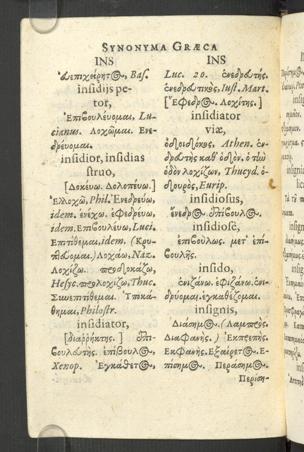 SYNONYMA GRÆCA
INS
Ἀνεπιχείρητος, Bas.
insidijs pe-
tor,
Ἐπιβουλεύομαι, Lu-
cianus. Λοχῶμαι. Ἐνε-
δρεύομαι.
insidior, insidias
struo,
[Δοκεύω. Δολοπεύω.]
Ἐλλοχῶ, Phil. Ἐνεδρεύω,
idem. ἐνέχω. ἐφεδρεύω,
idem. Ἐπιβουλεύω, Luci.
Ἐπιτίθεμαι, idem. (Κρυ-
Λοχάω, Naz.
Λοχίζω. προσδοκάζω,
Hesyc. προλοχίζω, Thuc.
Συνεπιτίθεμαι. Ὑποκά-
θημαι, Philostr.
insidiator,
[διαῤῥήκτης.] ἐπι-
βουλευτής. ἐπίβουλος,
Xenop. Ἐγκάθετος,
INS
Luc. 20. ἐνεδρευτής.
ἐνεδρευτικὸς, Iust. Mart.
[Ἔφεδρος. Λοχίτης.]
insidiator
viæ,
ὁδοιδόκος, Athen. ἐνε-
δρευτὴς καθ' ὁδὸν. ὁ τὴν
ὁδὸν λοχίζων, Thucyd. ὁ-
Eurip.
insidiosus,
ἔνεδρος. ἐπίβουλος.
insidiosè,
ἐπιβούλως. μετ' ἐπι-
βουλῆς.
insido,
ἐνιζάνω. ἐφιζάνω. ἐνι-
δρύομαι. ἐγκαθέζομαι.
insignis,
Διάσημος. (Λαμπρός.
Διαφανής.) Ἐκπρεπής.
Ἐκφανής. Ἐξαίρετος. Ἐ-
πίσημος. Παράσημος.
Περίση-